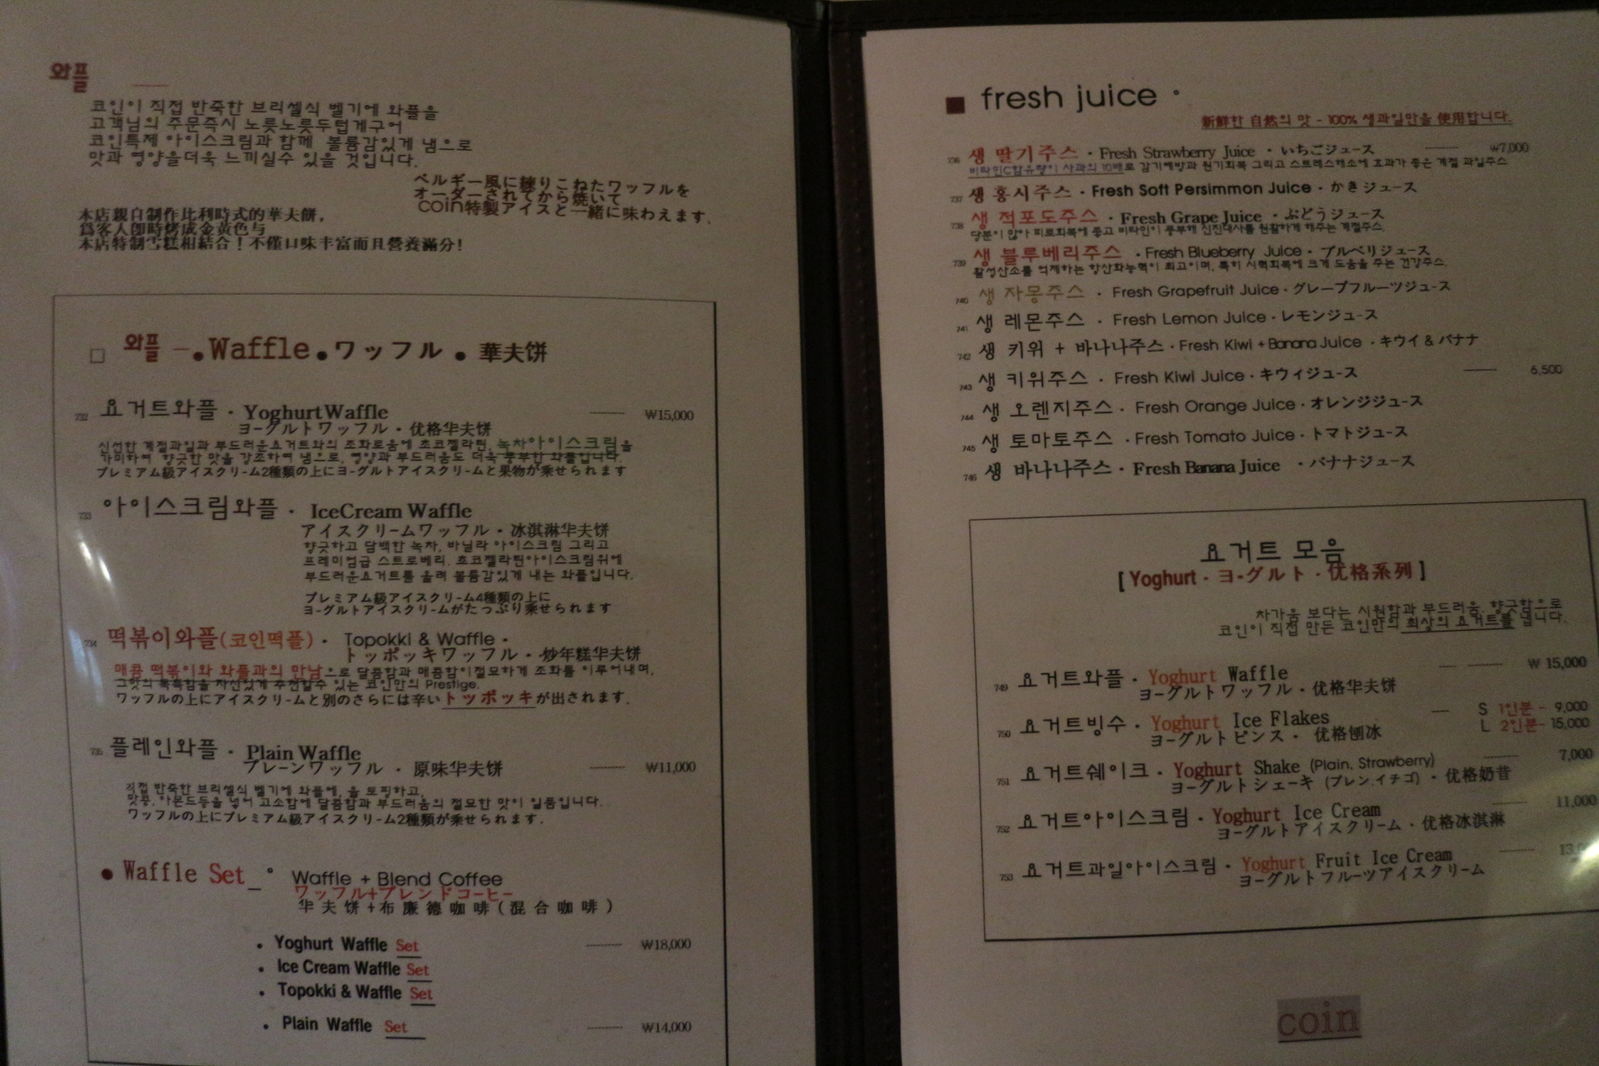 와플
코인이 직접 반죽한 브리셀식 벨기에 와플을
고객님의 주문즉시 노릇노릇두텁게구어
코인특제 아이스크림과 함께 볼륨감있게 냄으로
맛과 영양을더욱 느끼실수 있을 것입니다.
ベルギー風に練りこねたワッフルを
オーダーされてから焼いて
coin特製アイスと一緒に味わえます.
本店親自制作比利時式的華夫餅,
爲客人即時烤成金黃色与
本店特制雪糕相結合！不僅口味丰富而且營養滿分!
□ 와플 – ● Waffle ● ワッフル ● 華夫饼
732 요거트와플 · Yoghurt Waffle ₩15,000
ヨーグルトワッフル · 优格华夫饼
신선한 계절과일과 부드러운요거트와의 조화로움에 초코젤라틴, 녹차아이스크림을
가미하여 향긋한 맛을 강조하여 냄으로, 영양과 부드러움도 더욱 풍부한 와플입니다.
プレミアム級アイスクリーム2種類の上にヨーグルトアイスクリームと果物が乗せられます
733 아이스크림와플 · IceCream Waffle
アイスクリームワッフル · 冰淇淋华夫饼
향긋하고 담백한 녹차, 바닐라 아이스크림 그리고
프레미엄급 스트로베리, 쵸코젤라틴아이스크림위에
부드러운요거트를 올려 볼륨감있게 내는 와플입니다.
プレミアム級アイスクリーム4種類の上に
ヨーグルトアイスクリームがたっぷり乗せられます
734 떡볶이와플(코인떡플) · Topokki & Waffle ·
トッポッキワッフル · 炒年糕华夫饼
매콤 떡볶이와 와플과의 만남으로 달콤함과 매콤함이절묘하게 조화를 이루어내며,
그맛의 독특함을 자신있게 추천할수 있는 코인만의 Prestige.
ワッフルの上にアイスクリームと別のさらには辛いトッポッキが出されます.
735 플레인와플 · Plain Waffle
プレーンワッフル · 原味华夫饼 ₩11,000
직접 반죽한 브리셀식 벨기에 와플에, 을 토핑하고,
맛콩, 아몬드등을 넣어 고소함에 달콤함과 부드러움의 절묘한 맛이 일품입니다.
ワッフルの上にプレミアム級アイスクリーム2種類が乗せられます.
● Waffle Set _ ° Waffle + Blend Coffee
ワッフル+ブレンドコーヒー
华夫饼+布廉德咖啡(混合咖啡)
• Yoghurt Waffle Set ₩18,000
• Ice Cream Waffle Set
• Topokki & Waffle Set
• Plain Waffle Set ₩14,000
■ fresh juice °
新鮮한 自然의 맛 - 100% 생과일만을 使用합니다.
736 생 딸기주스 · Fresh Strawberry Juice · いちごジュース ₩7,000
비타민C함유량이 사과의 10배로 감기예방과 원기회복 그리고 스트레스해소에 효과가 좋은 계절 과일주스
737 생 홍시주스 · Fresh Soft Persimmon Juice · かきジュース
738 생 적포도주스 · Fresh Grape Juice · ぶどうジュース
당분이 많아 피로회복에 좋고 비타민이 풍부해 신진대사를 원활하게 해주는 계절주스.
739 생 블루베리주스 · Fresh Blueberry Juice · ブルベリジュース
활성산소를 억제하는 항산화능력이 최고이며, 특히 시력회복에 크게 도움을 주는 건강주스.
740 생 자몽주스 · Fresh Grapefruit Juice · グレープフルーツジュース
741 생 레몬주스 · Fresh Lemon Juice · レモンジュース
742 생 키위 + 바나나주스 · Fresh Kiwi + Banana Juice · キウイ & バナナ
743 생 키위주스 · Fresh Kiwi Juice · キウィジュース 6,500
744 생 오렌지주스 · Fresh Orange Juice · オレンジジュース
745 생 토마토주스 · Fresh Tomato Juice · トマトジュース
746 생 바나나주스 · Fresh Banana Juice · バナナジュース
요거트 모음
[ Yoghurt · ヨーグルト · 优格系列 ]
차가움 보다는 시원함과 부드러움, 향긋함으로
코인이 직접 만든 코인만의 최상의 요거트를 냅니다.
749 요거트와플 · Yoghurt Waffle ₩ 15,000
ヨーグルトワッフル · 优格华夫饼
750 요거트빙수 · Yoghurt Ice Flakes S 1인분 - 9,000
ヨーグルトピンス · 优格刨冰 L 2인분- 15,000
751 요거트쉐이크 · Yoghurt Shake (Plain, Strawberry) 7,000
ヨーグルトシェーキ (プレン,イチゴ) · 优格奶昔
752 요거트아이스크림 · Yoghurt Ice Cream 11,000
ヨーグルトアイスクリーム · 优格冰淇淋
753 요거트과일아이스크림 · Yoghurt Fruit Ice Cream
ヨーグルトフルーツアイスクリーム
coin